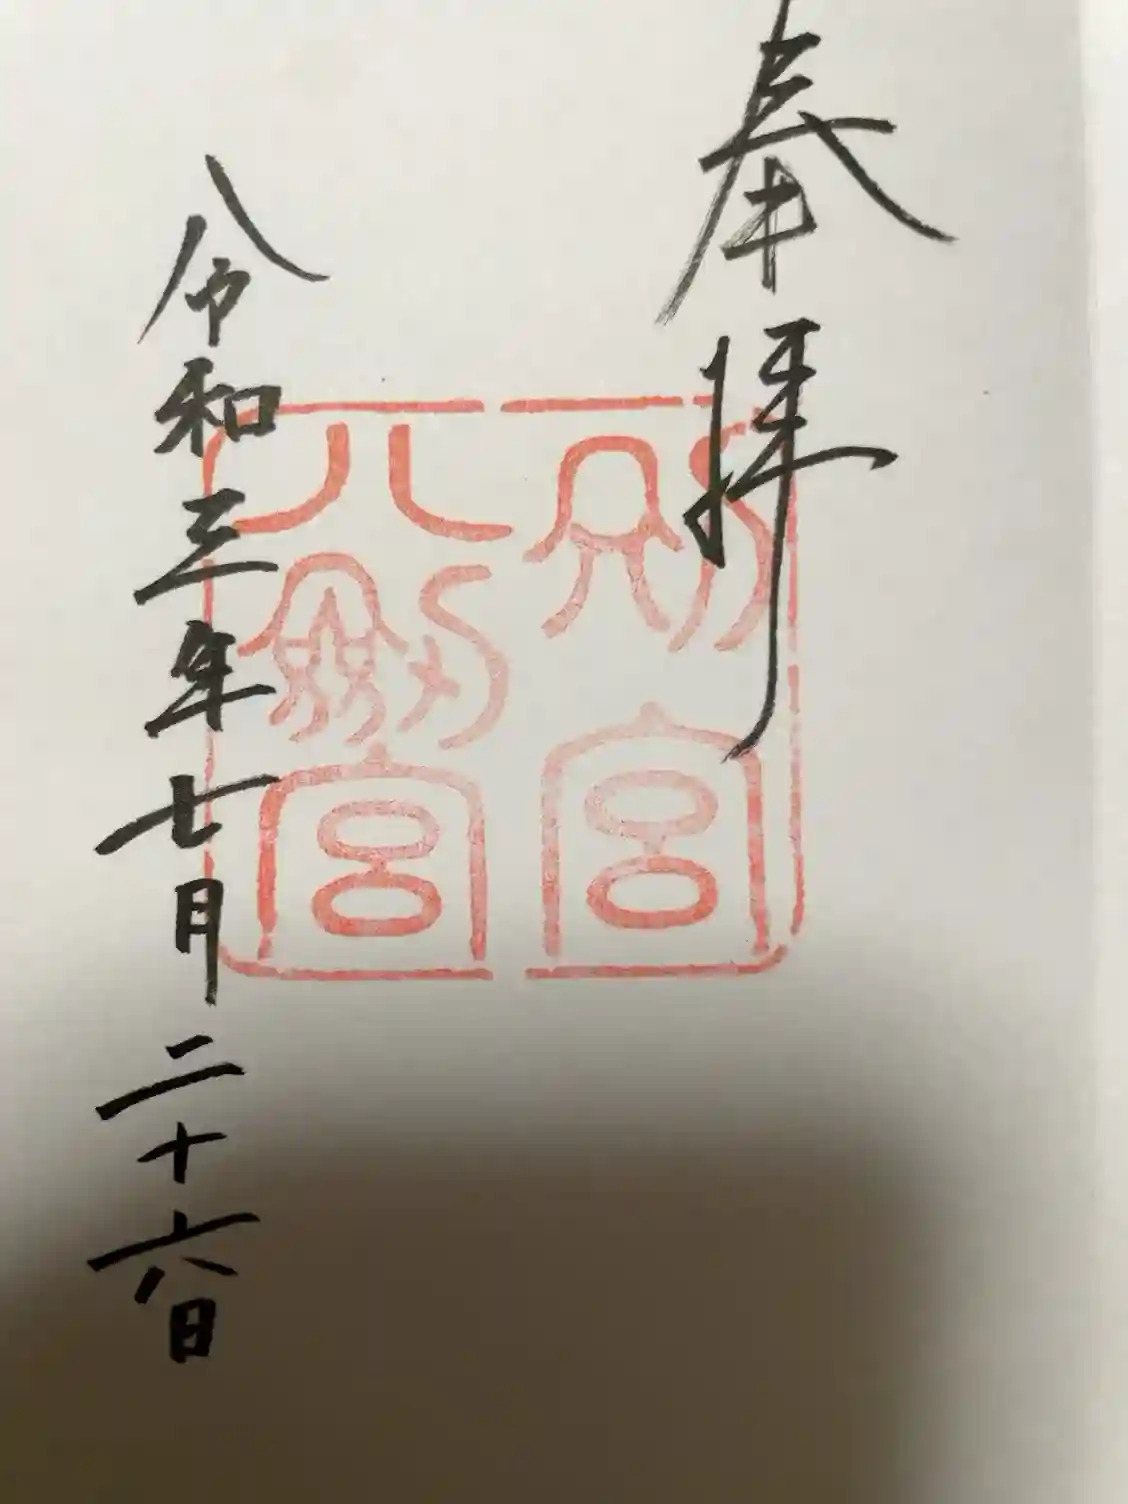 奉拝
別宮
八劒宮
令和三年七月二十六日